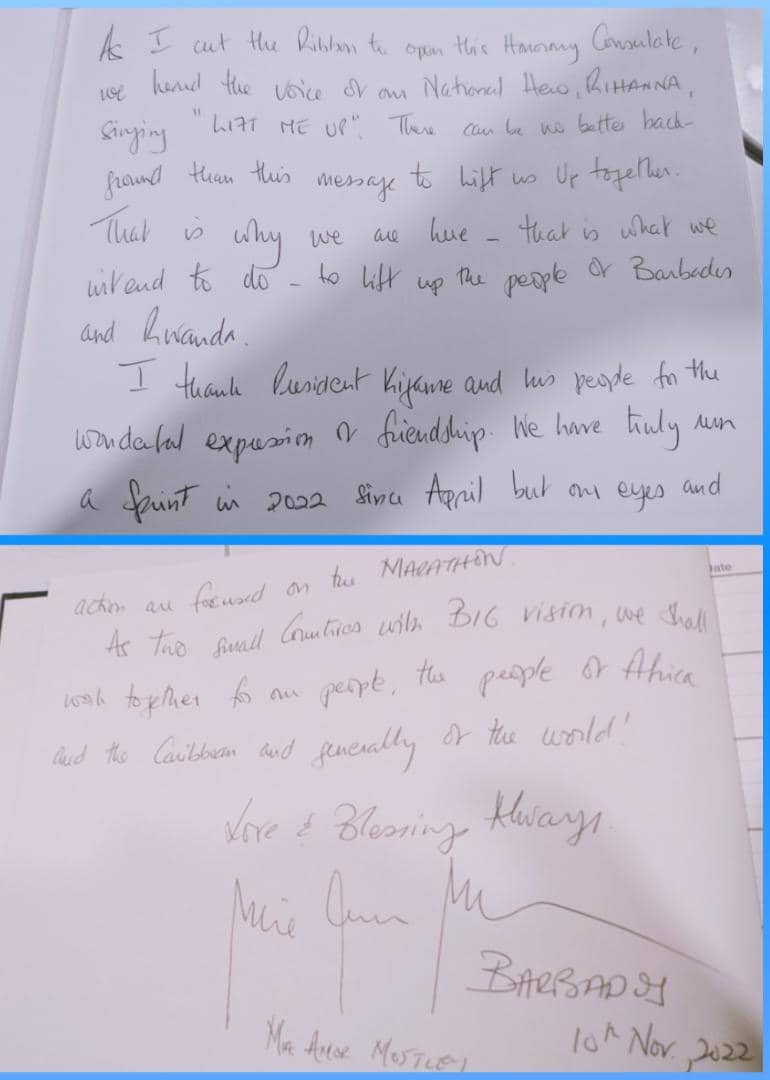 As I cut the Ribbon to open this Honorary Consulate,
we heard the voice of our National Hero, RIHANNA,
singing "LIFT ME UP". There can be no better back-
ground than this message to Lift us Up together.
That is why we are here - that is what we
intend to do - to lift up the people of Barbados
and Rwanda.
I thank President Kigame and his people for the
wonderful expression of friendship. We have truly run
a Sprint in 2022 since April but our eyes and
action are focused on the MARATHON.
As Two small Countries with BIG vision, we shall
work together for our people, the people of Africa
and the Caribbean and generally of the world!
Love & Blessings Always.
Mia Amor M
BARBADOS
Mia Amor MOTTLEY
10th Nov., 2022